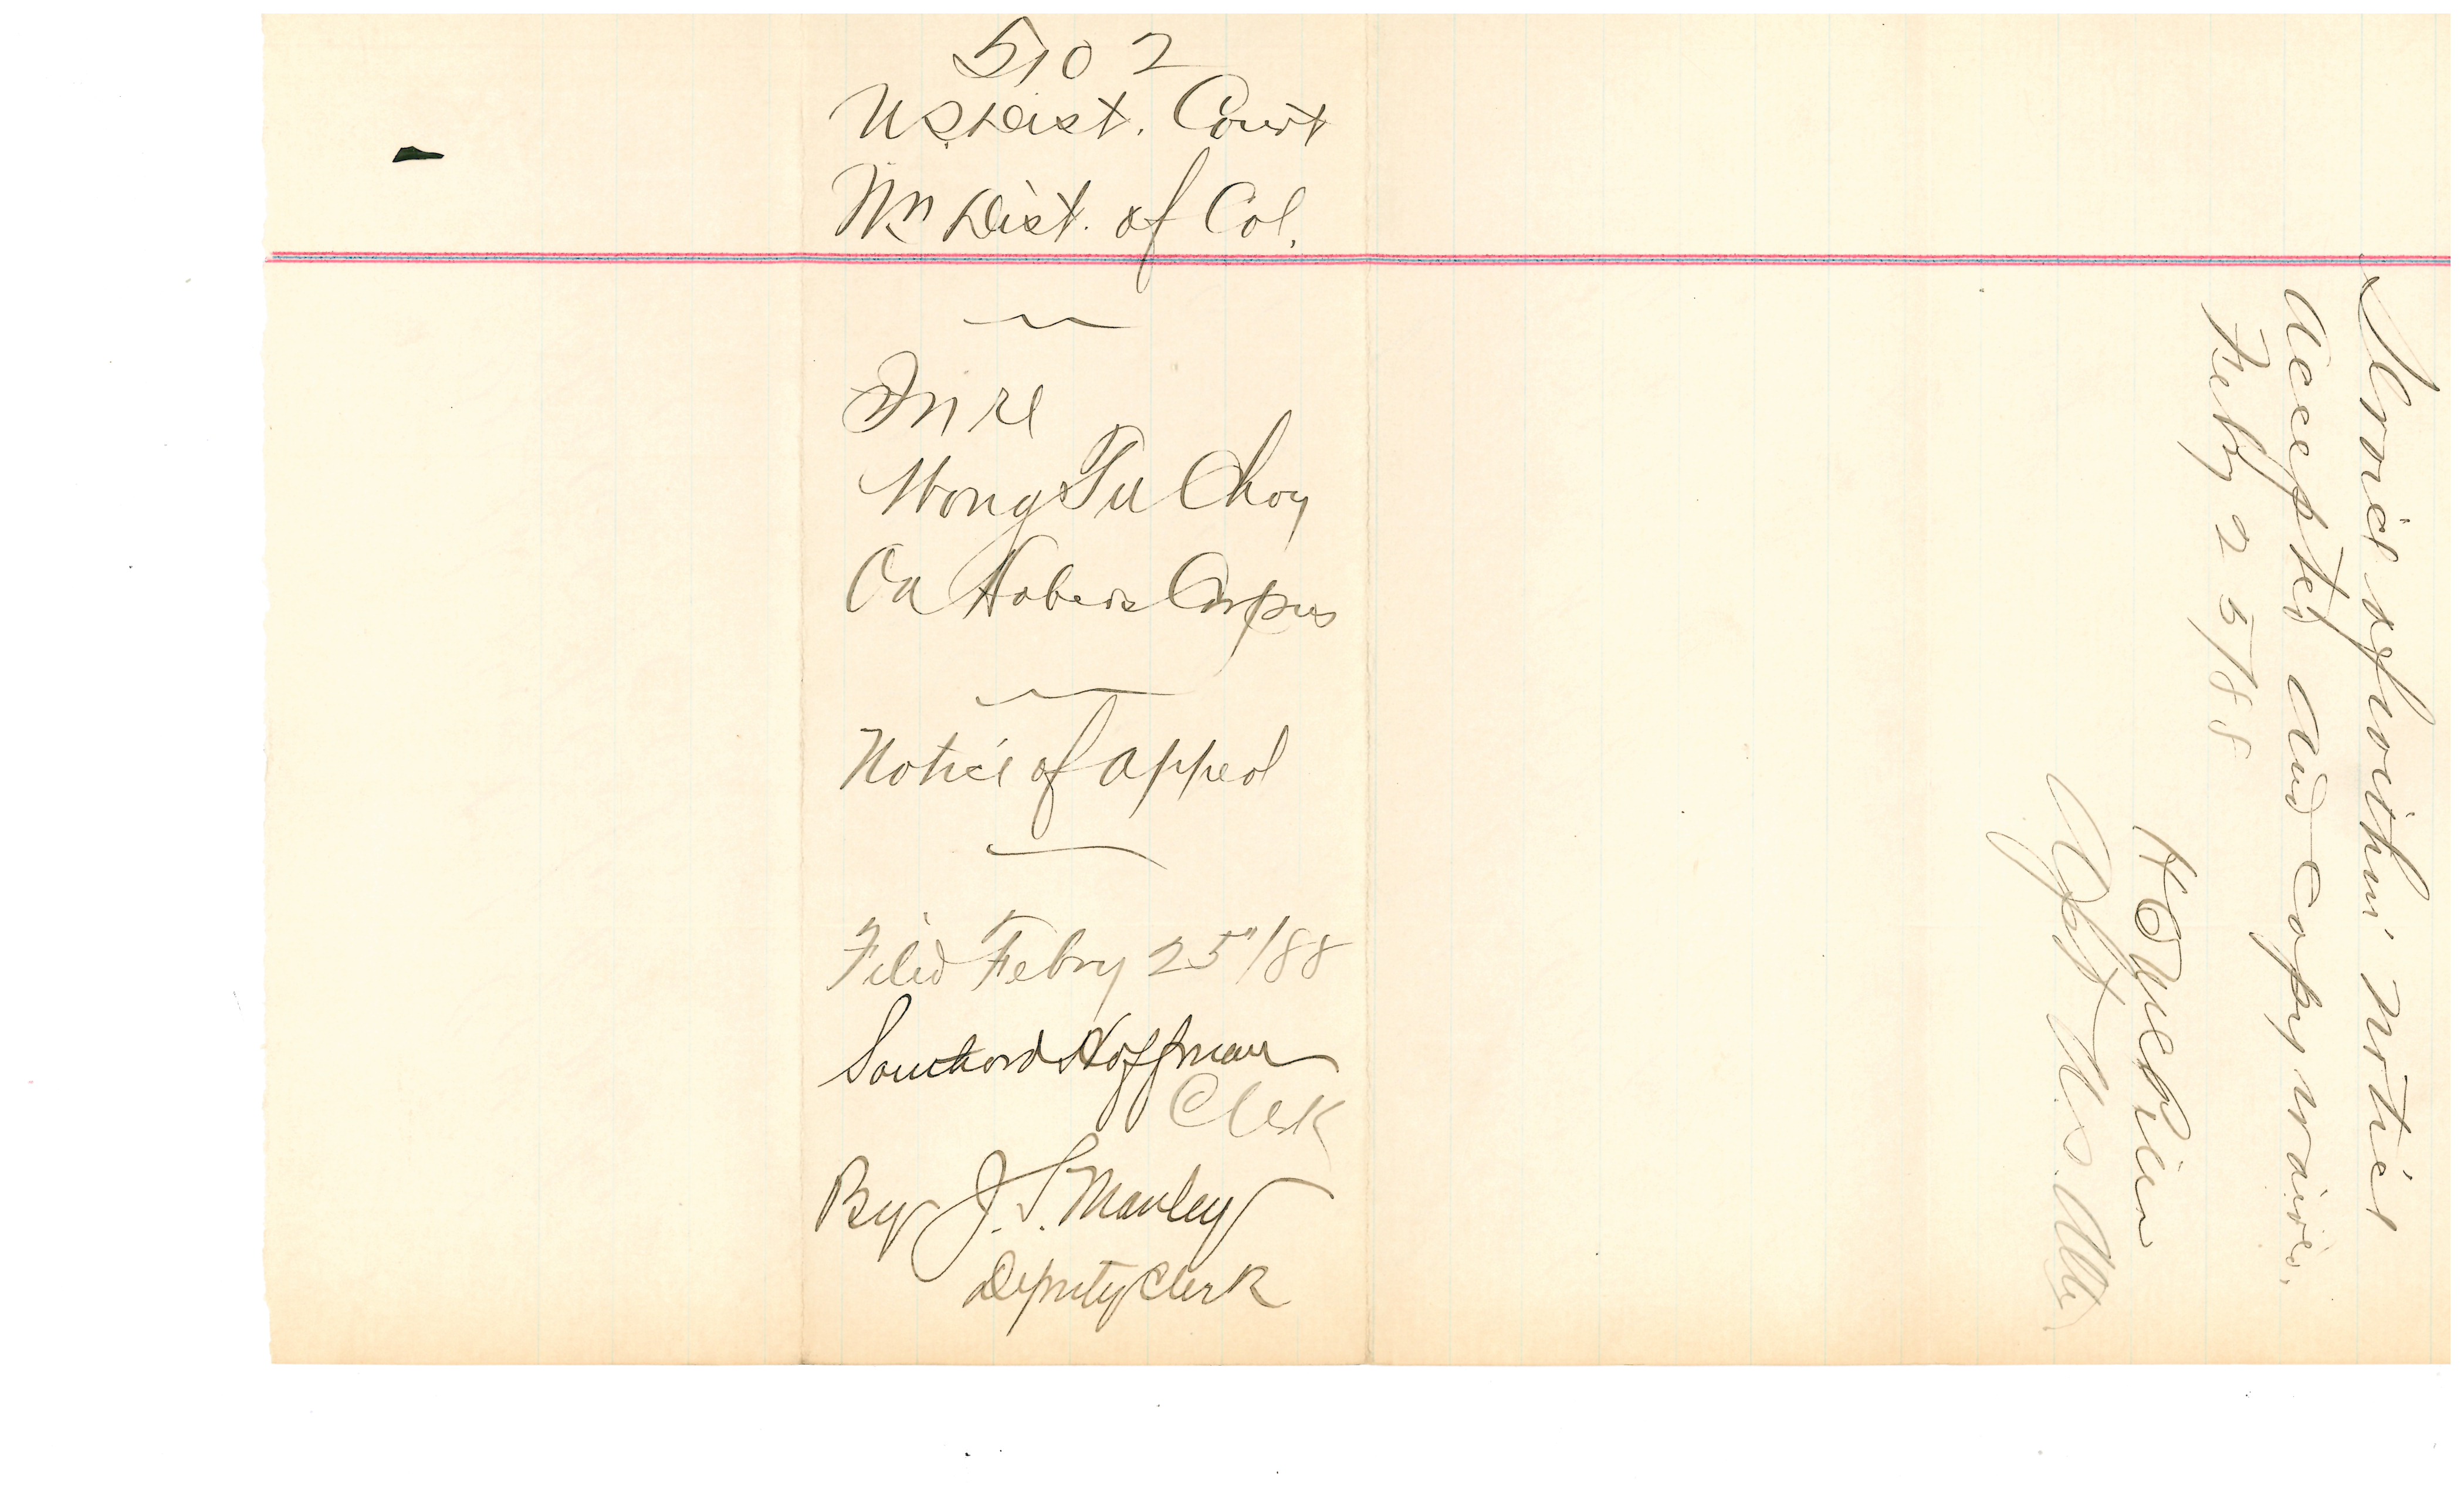 5102
U.S. Dist. Court
Nn Dist. of Cal.
In re
Wong Tu Choy
On Habeas Corpus
Notice of Appeal
Filed Febry 25"/88
Southard Hoffman
Clerk
By J. S. Manley
Deputy Clerk
Service of within notice
accepted and copy waived.
Feby 25/88
U.S. Atty